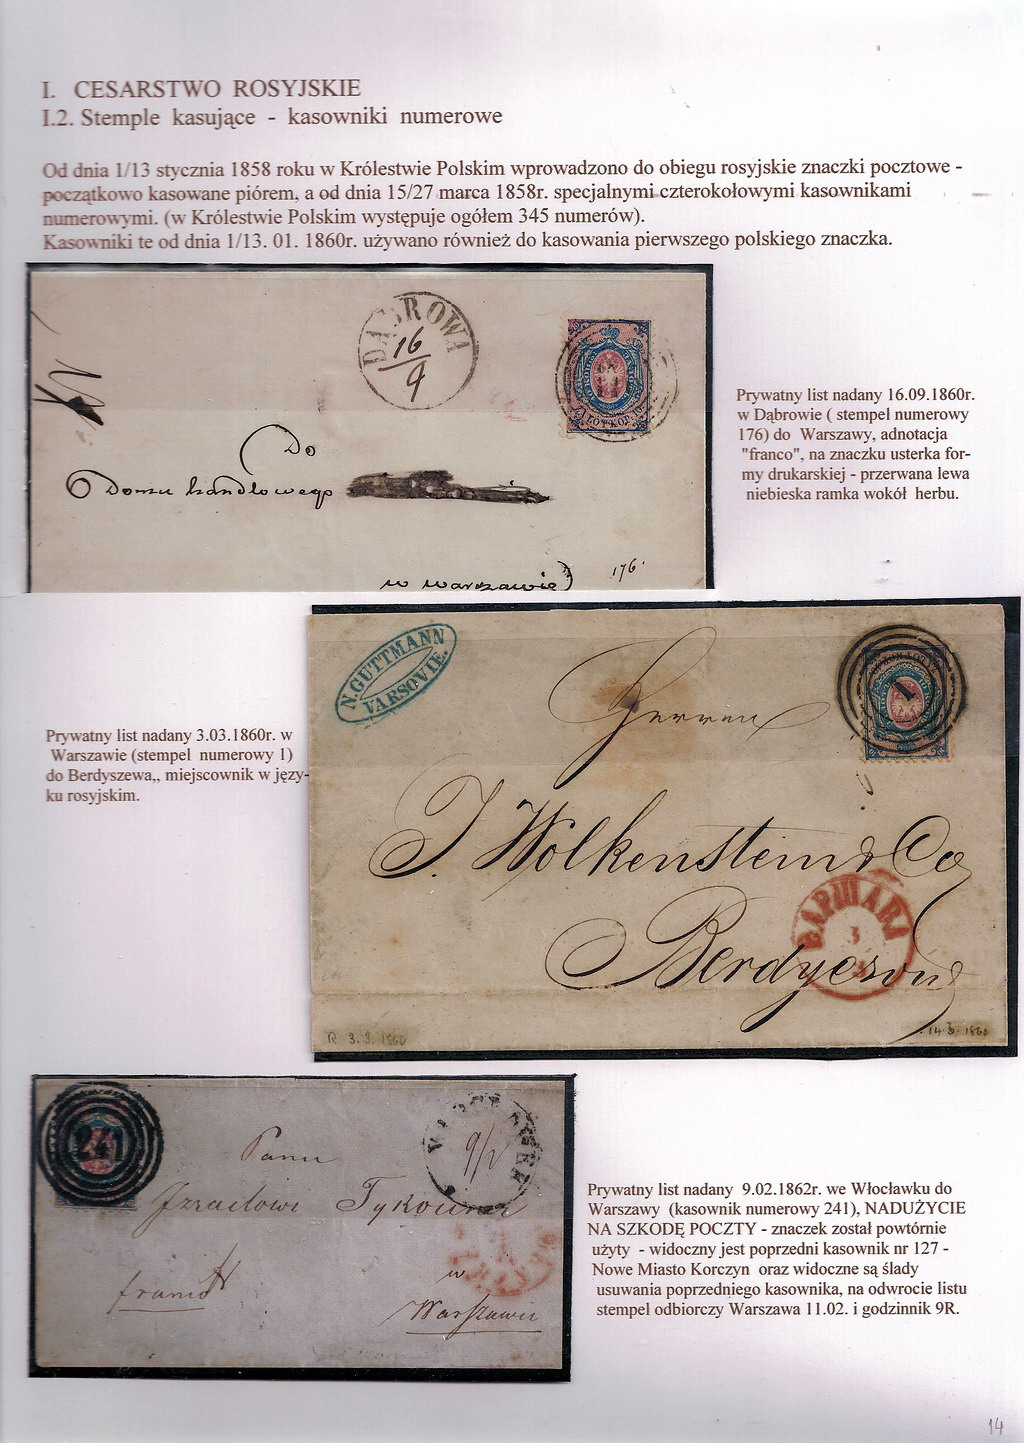 I. CESARSTWO ROSYJSKIE
I.2. Stemple kasujące - kasowniki numerowe
Od dnia 1/13 stycznia 1858 roku w Królestwie Polskim wprowadzono do obiegu rosyjskie znaczki pocztowe -
początkowo kasowane piórem, a od dnia 15/27 marca 1858r. specjalnymi czterokołowymi kasownikami
numerowymi. (w Królestwie Polskim występuje ogółem 345 numerów).
Kasowniki te od dnia 1/13. 01. 1860r. używano również do kasowania pierwszego polskiego znaczka.
DĄBROWA
16/9
Do
Domu handlowego
w warszawie
176
Prywatny list nadany 16.09.1860r.
w Dąbrowie ( stempel numerowy
176) do Warszawy, adnotacja
"franco", na znaczku usterka for-
my drukarskiej - przerwana lewa
niebieska ramka wokół herbu.
N. GUTTMANN
VARSOVIE.
1
Herren
J. Wolkenstein & Co
Berdyczow
3
R 3.3.1860
14.3.1860
Prywatny list nadany 3.03.1860r. w
Warszawie (stempel numerowy 1)
do Berdyszewa,, miejscownik w języ-
ku rosyjskim.
241
9/2
Panu
Izraelowi Tykociner
franco
w
Warszawie
Prywatny list nadany 9.02.1862r. we Włocławku do
Warszawy (kasownik numerowy 241), NADUŻYCIE
NA SZKODĘ POCZTY - znaczek został powtórnie
użyty - widoczny jest poprzedni kasownik nr 127 -
Nowe Miasto Korczyn oraz widoczne są ślady
usuwania poprzedniego kasownika, na odwrocie listu
stempel odbiorczy Warszawa 11.02. i godzinnik 9R.
14